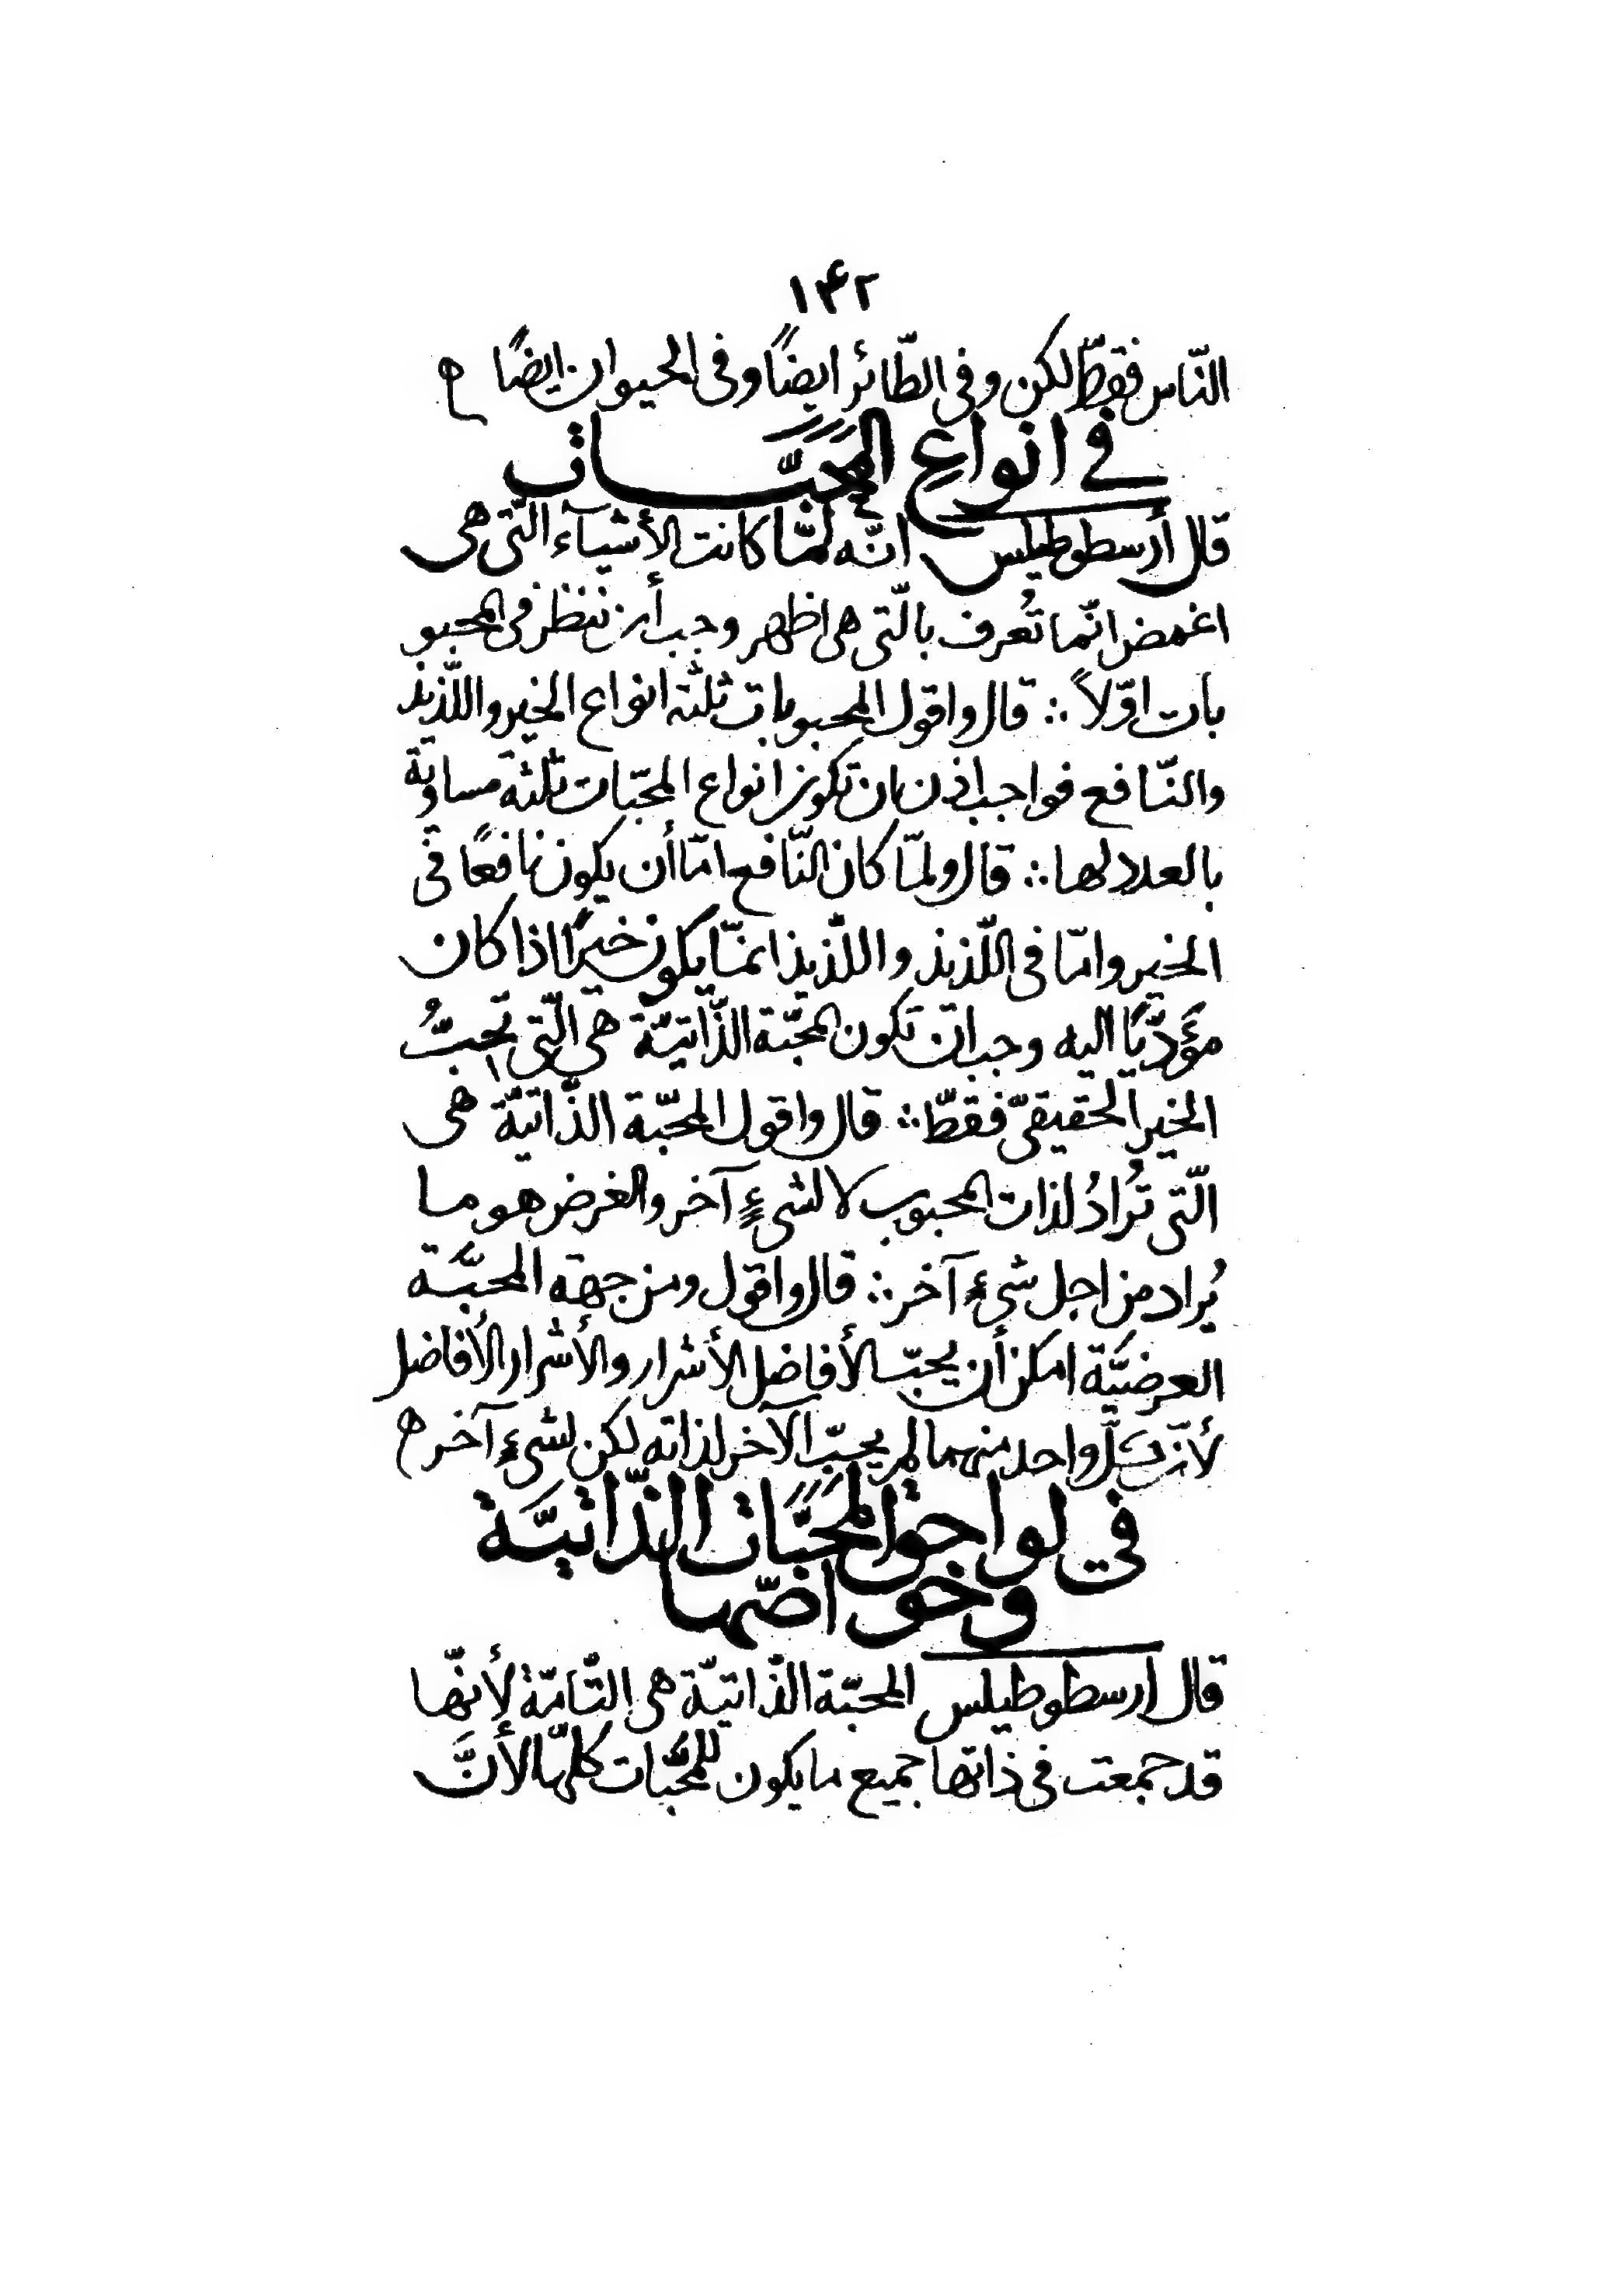 ۱۴۲
النّاس فقطّ لكن وفى الطّائر ايضًا وفى الحيوان ايضًا ه
في انواعِ المحبَّــات
قال أرسطوطيلس انّه لمّا كانت الأشيآء الّتى هى
اغمض انّما تُعرف بالّتى هى اظهر وجب أن ننظر فى المحبو
بات اوّلاً ∴ قال واقول المحبوبات ثلثة انواع الخير واللّذيذ
والنّافع فواجب اذن ان تكون انواع المحبّات ثلثة مساوية
بالعدد لها ∴ قال ولمّا كان النّافع امّا أن يكون نافعًا فى
الخير وامّا فى اللّذيذ واللّذيذ انمّا يكون خيرًا اذا كان
مؤَدّيًا اليه وجب ان تكون المحبّة الذّاتيّة هى الّتى تحبُّ
الخير الحقيقىّ فقطّ ∴ قال واقول المحبّة الذّاتيّة هى
الّتى تُرادُ لذات المحبوب لا لشىءٍ آخر والغرض هو ما
يُراد من اجل شىءٍ آخر ∴ قال واقول ومن جهة المحبَّة
العرضيَّة امكن أن يحبّ الأفاضل الأشرار والأشرار الأفاضل
لأنّ كلّ واحد منهما لم يحبّ الآخر لذاته لكن لشىءٍ آخر ه
في لواحق المحبَّات الذّاتيَّة
وخواصّها
قال أرسطوطيلس المحبّة الذّاتيّة هى التّامّة لأنّها
قد جمعت فى ذاتها جميع ما يكون للمحبّات كلّها لأنَّ